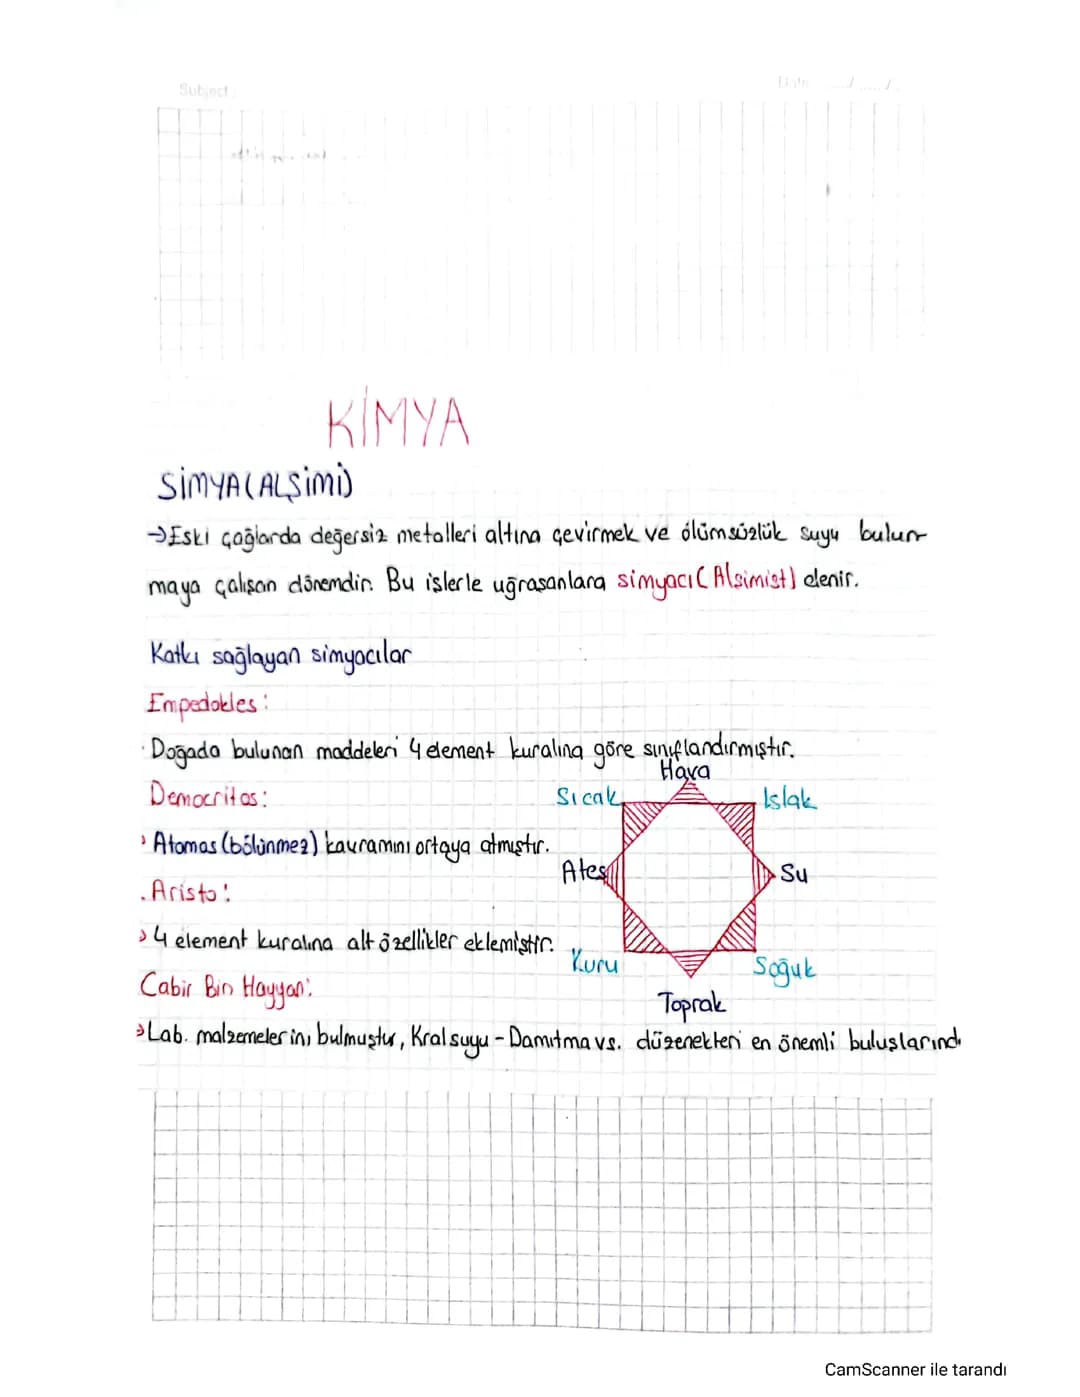 Subject:
Date
KİMYA
SİMYA(ALŞİMİ)
→Eski çağlarda değersiz metalleri altına çevirmek ve ölümsüzlük suyu bulun-
maya çalışan dönemdir. Bu işlerle uğraşanlara simyacı(Alşimist) denir.
Katkı sağlayan simyacılar
Empedokles:
Doğada bulunan maddeleri 4 element kuralına göre sınıflandırmıştır.
Hava
Democritos:
Sıcak
Islak
Atomos (bölünmez) kavramını ortaya atmıştır.
Ateş
Su
Aristo:
4 element kuralına alt özellikler eklemiştir.
Kuru
Soğuk
Cabir Bin Hayyan:
Toprak
Lab. malzemelerini bulmuştur, Kral suyu - Damıtma vs. düzenekleri en önemli buluşlarınd
CamScanner ile tarandı